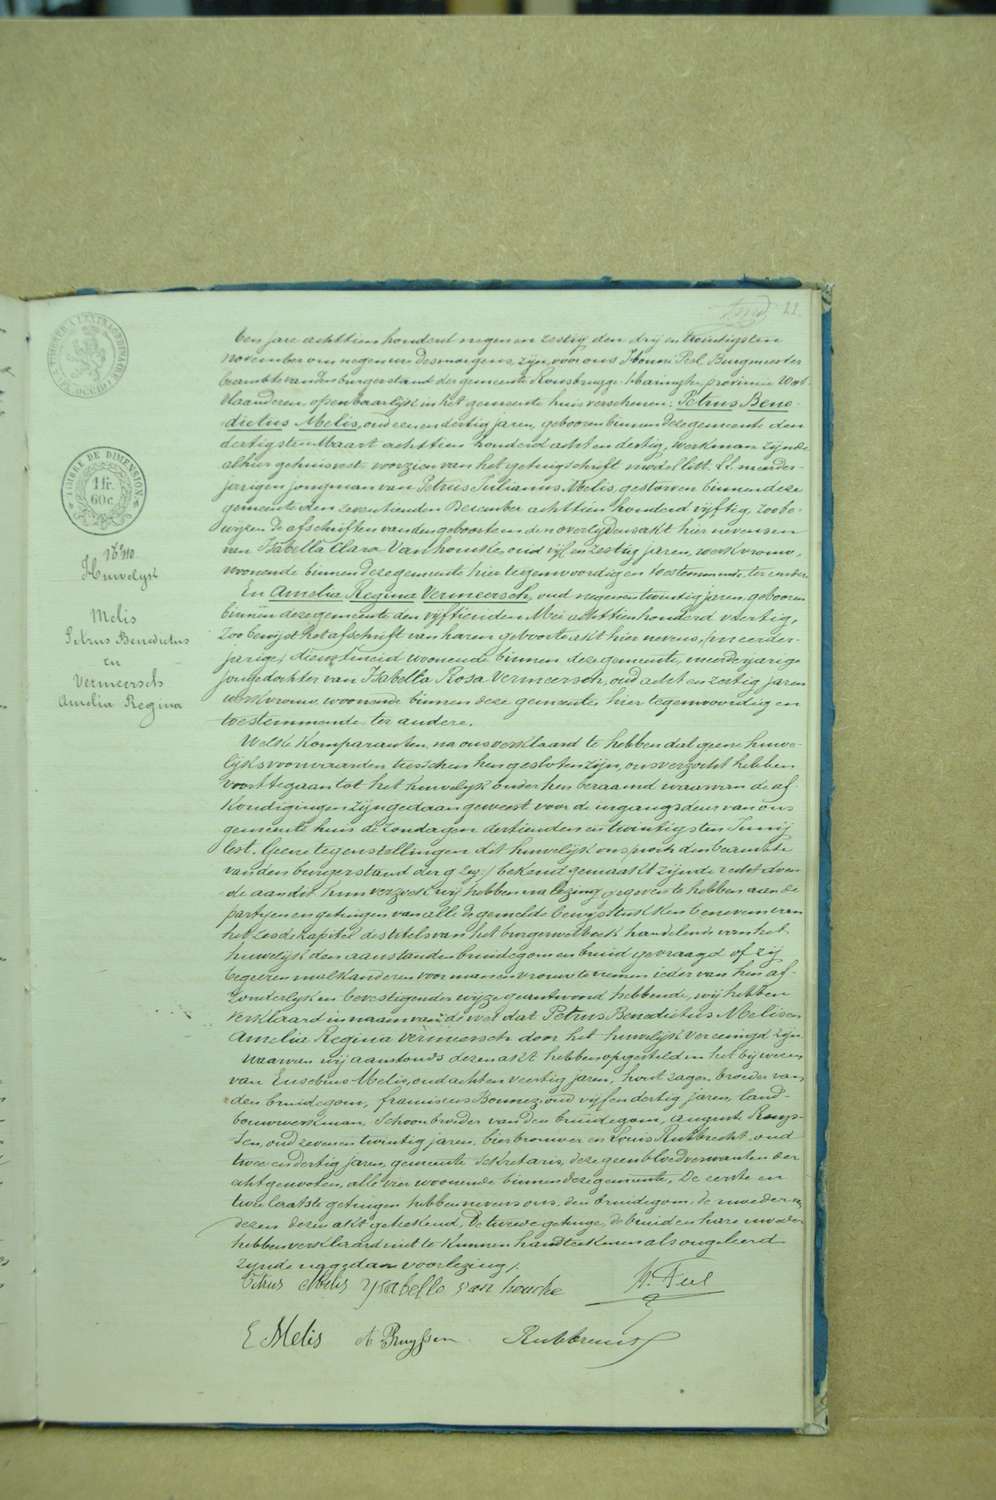 22.
TIMBRE DE DIMENSION
1 fr.
60 c.
N° 10.
Huwelijk
Melis
Petrus Benedictus
en
Vermeersch
Amelia Regina
Ten jare achttien honderd negen en zestig den drij en twintigsten
november om negen ure des morgens, zijn, voor ons Henri Burgmeester
beambte van den burgerstand der gemeente Rousbrugge-Haringhe, provincie West-
Vlaanderen, openbaarlijk in het gemeente huis verschenen: Petrus Bene-
dictus Melis, oud een en dertig jaren, geboren binnen deze gemeente den
dertigsten Maart achttien honderd acht en dertig, werkman zijnde
alhier gehuisvest, voorzien van het getuigschrift model litt. meerder-
jarigen jongman van Petrus Julianus Melis, gestorven binnen deze
gemeente den zeventienden December achttien honderd vijftig, zoo be-
wijzen de afschriften van den geboorte en den overlijdensakt hier nevens en
van Isabella Clara Van houcke, oud vijf en zestig jaren, werkvrouw,
woonende binnen deze gemeente hier tegenwoordig en toestemmende, ter eender
En Amelia Regina Vermeersch, oud negen en twintig jaren, geboren
binnen deze gemeente den vijftienden Mei achttien honderd veertig,
zoo bewijst het afschrift van haren geboorteakt hier nevens, (meerder-
jarige) dienstmeid woonende binnen deze gemeente, meerderjarige
jonge dochter van Isabella Rosa Vermeersch, oud acht en zestig jaren
werkvrouw, woonende binnen deze gemeente, hier tegenwoordig en
toestemmende ter andere.
Welke komparanten, na ons verklaard te hebben dat geene huwe-
lijksvoorwaarden tusschen hen gesloten zijn, ons verzocht hebben
voort te gaan tot het huwelijk onder hen beraamd waarvan de af-
kondigingen zijn gedaan geweest voor de ingangsdeur van ons
gemeente huis de zondagen dertienden en twintigsten Junij
lest. Geene tegenstellingen dit huwelijk ons (noch den beambte
van den burgerstand der g) bekend gemaakt zijnde recht doen-
de aan dit hun verzoek wij hebben na lezing gegeven te hebben aan de
partijen en getuigen van alle de gemelde bewijsstukken benevens van
het zesde kapitel des titels van het burgerwetboek handelende van het
huwelijk den aanstanden bruidegom en bruid gevraagd of zij
begeeren malkanderen voor man en vrouw te nemen ieder van hen af-
zonderlijk en bevestigender wijze geantwoord hebbende, wij hebben
verklaard in naam van de wet dat Petrus Benedictus Melis en
Amelia Regina Vermeersch door het huwelijk vereenigd zijn.
Waarvan wij aanstonds dezen akt hebben opgesteld in het bijwezen
van Eusebius Melis, oud acht en veertig jaren, hout zager, broeder van
den bruidegom, franciscus Bonnez, oud vijf en dertig jaren, land-
bouwwerkman, schoonbroeder van den bruidegom, August Ruys-
sen, oud zeven en twintig jaren, bierbrouwer en Louis Rubbrecht, oud
twee en dertig jaren, gemeente sekretaris, deze geen bloedverwanten der
echtgenooten, alle vier woonende binnen deze gemeente. De eerste en
twee laatste getuigen hebben nevens ons, den bruidegom, de moeder
dezen akt geteekend. De tweede getuige, de bruid en hare moeder
hebben verklaard niet te kunnen handteekenen als ongeleerd
zijnde na gedane voorlezing.
Petrus Melis Ysabella van houcke
E Melis A Ruyssen Rubbrecht